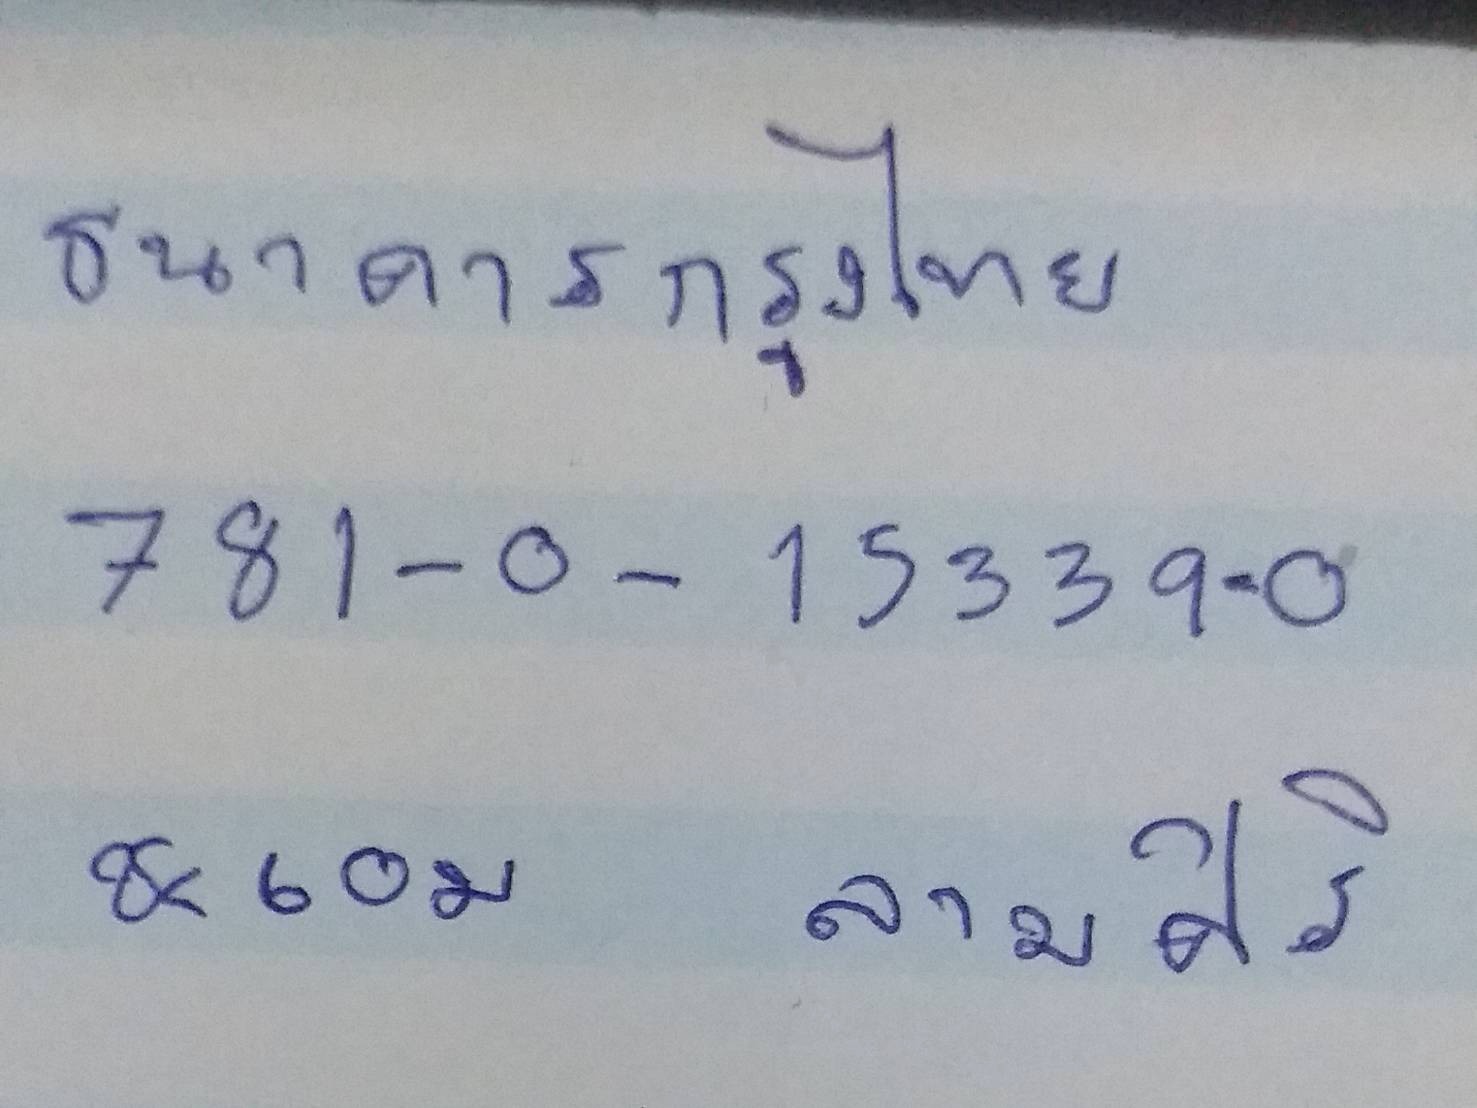 ธนาคารกรุงไทย
781-0-15339-0
ชะเอม ลามศิริ